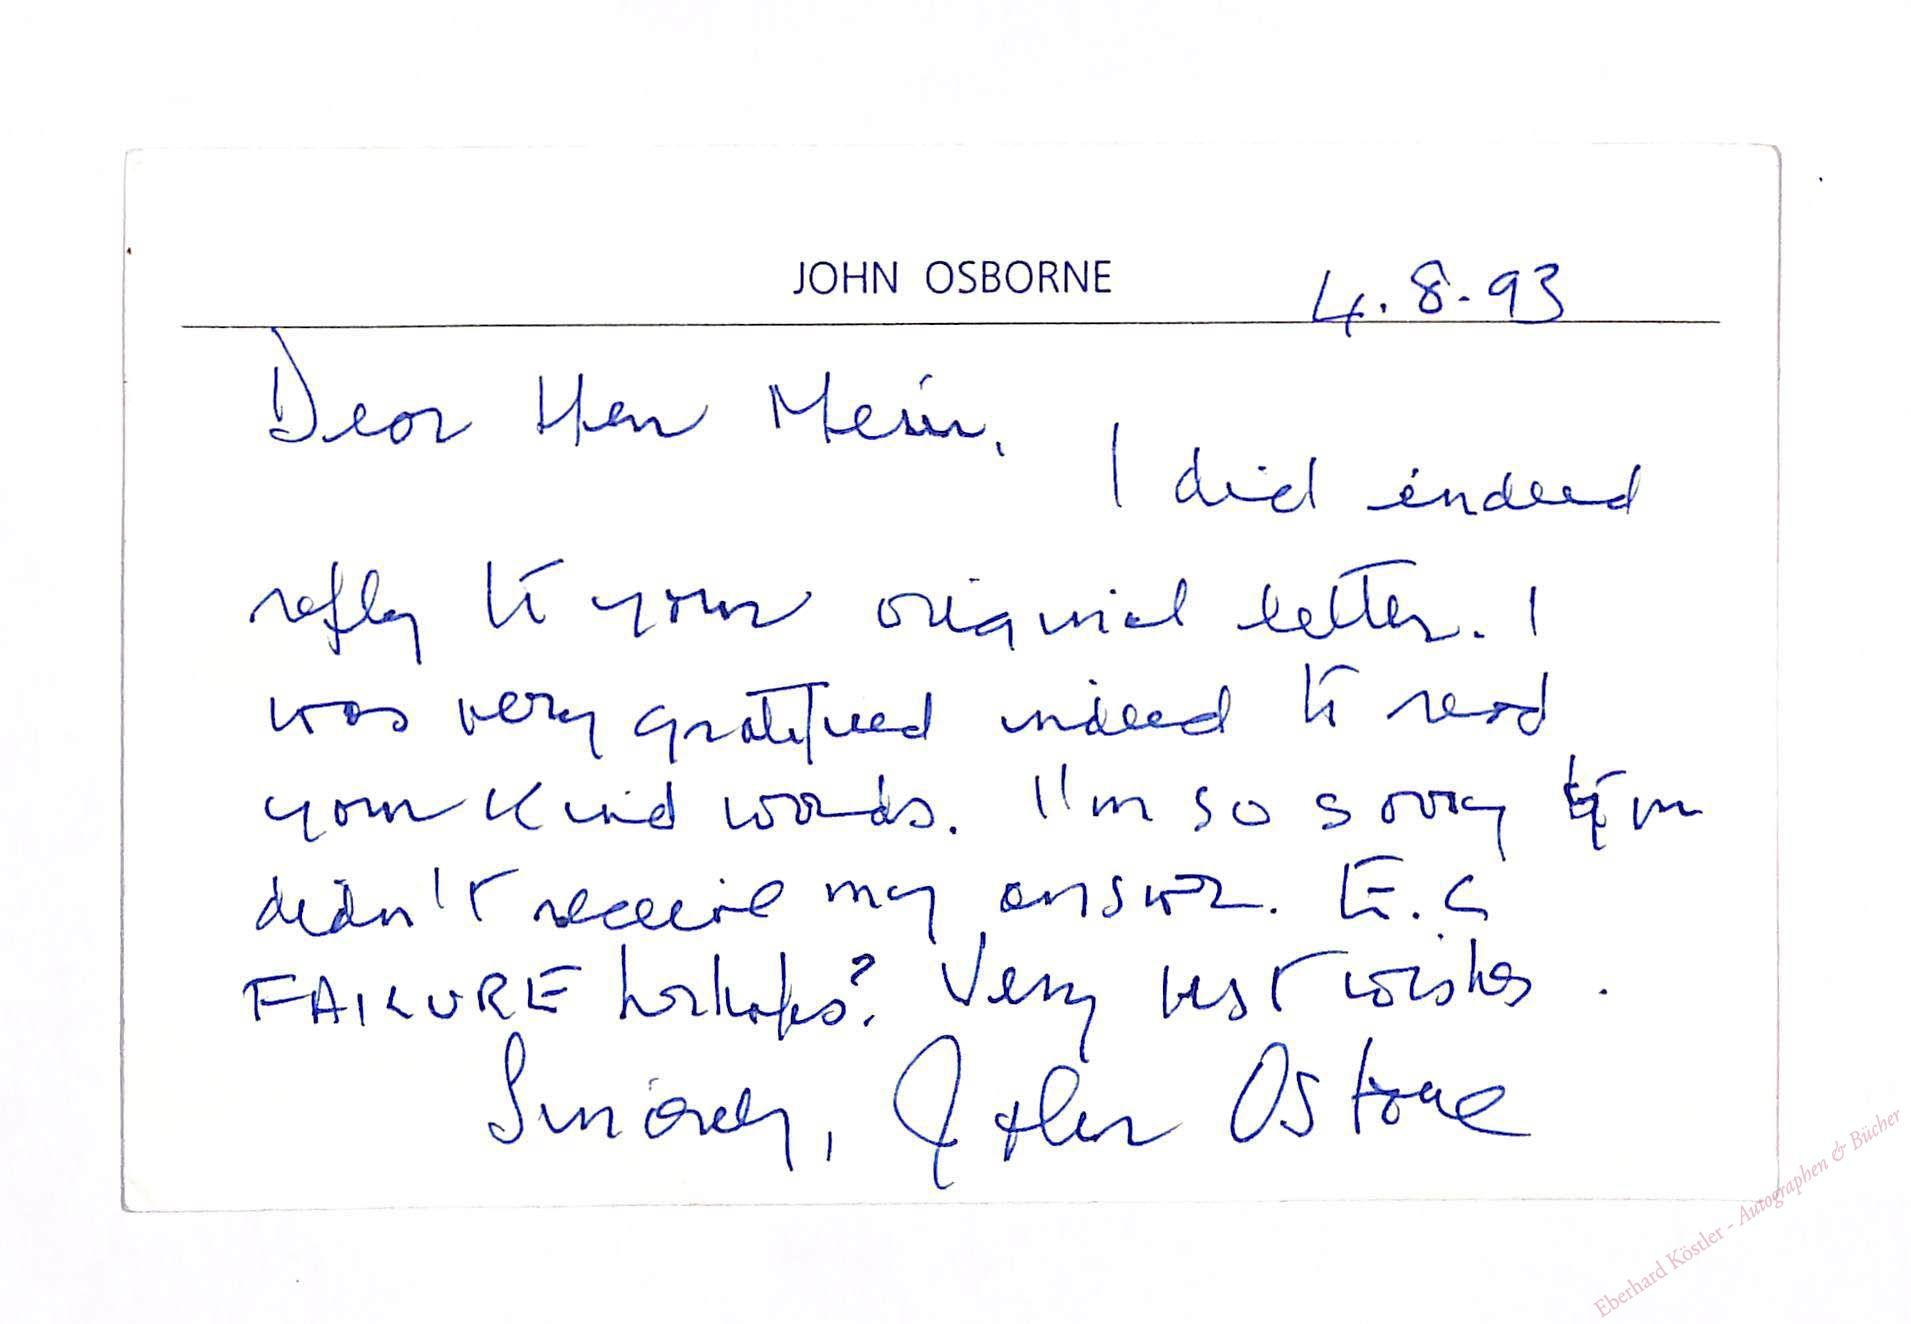 JOHN OSBORNE 4.8.93
Dear Herr
I did indeed
reply to your original letter. I
was very gratified indeed to read
your kind words. I'm so sorry you
didn't receive my answer. E.C
FAILURE perhaps? Very best wishes.
Sincerely, John Osborne
Eberhard Köstler - Autographen & Bücher